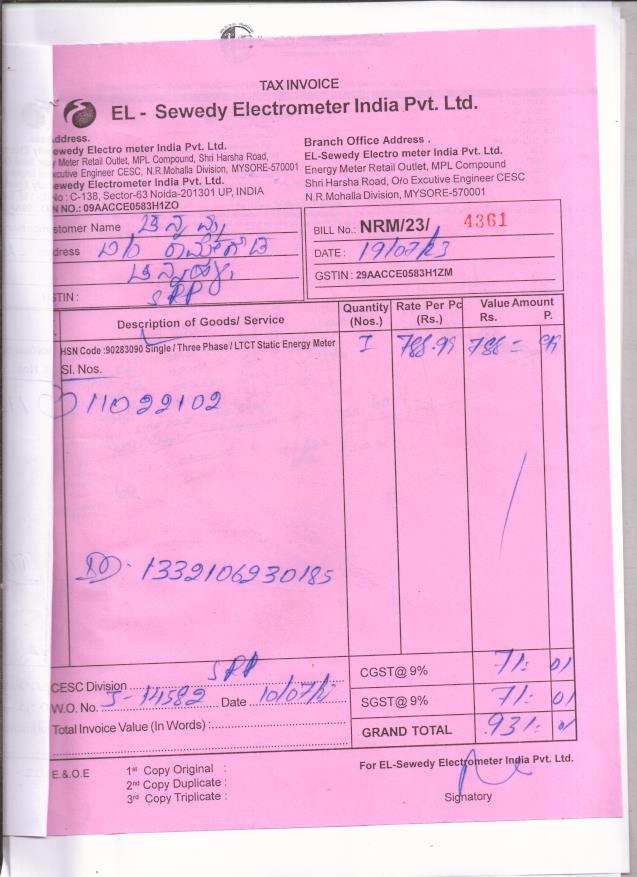 TAX INVOICE
EL - Sewedy Electrometer India Pvt. Ltd.
ddress.
ewedy Electro meter India Pvt. Ltd.
Meter Retail Outlet, MPL Compound, Shri Harsha Road,
xcutive Engineer CESC, N.R.Mohalla Division, MYSORE-570001
ewedy Electrometer India Pvt. Ltd.
No : C-138, Sector-63 Noida-201301 UP, INDIA
N NO.: 09AACCE0583H1ZO
Branch Office Address .
EL-Sewedy Electro meter India Pvt. Ltd.
Energy Meter Retail Outlet, MPL Compound
Shri Harsha Road, O/o Excutive Engineer CESC
N.R.Mohalla Division, MYSORE-570001
stomer Name
dress
STIN : SRP
BILL No.: NRM/23/ 4361
DATE : 19/07/23
GSTIN : 29AACCE0583H1ZM
Description of Goods/ Service Quantity (Nos.) Rate Per Pc (Rs.) Value Amount Rs. P.
HSN Code :90283090 Single / Three Phase / LTCT Static Energy Meter 1 788.99 788 = 99
Sl. Nos.
11022102
1339106930185
CESC Division SRP
W.O. No. 5-14582 Date 10/07/
Total Invoice Value (In Words) :
CGST@ 9% 71 01
SGST@ 9% 71 01
GRAND TOTAL 931 01
E.& O.E
1st Copy Original :
2nd Copy Duplicate :
3rd Copy Triplicate :
For EL-Sewedy Electrometer India Pvt. Ltd.
Signatory